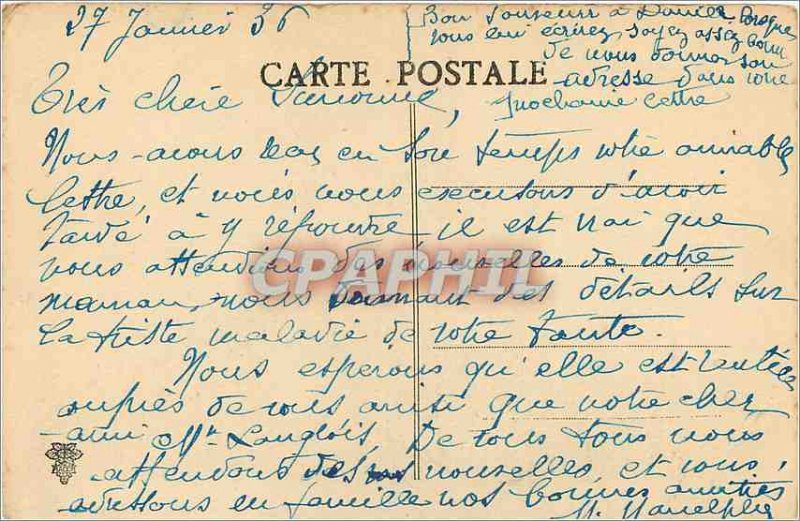 27 Janvier 36
Bon souvenir à lorsque
vous lui écrirez, soyez assez bonne
de nous donner son
adresse dans votre
prochaine lettre
CARTE POSTALE
Très chère
Nous avons reçu en son temps votre aimable
lettre, et nous nous excusons d'avoir
tardé à y répondre il est vrai que
nous attendions des nouvelles de votre
maman, nous donnant des détails sur
la triste maladie de votre tante.
CPAPHIL
Nous esperons qu'elle est rentrée
auprès de vous ainsi que notre cher
ami Mr Langlois, De vous tous nous
attendons des nouvelles et vous
adressons en famille nos bonnes amitiés
M.